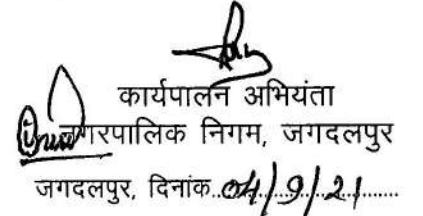 कार्यपालन अभियंता
नगरपालिक निगम, जगदलपुर
जगदलपुर, दिनांक..04/9/21..........